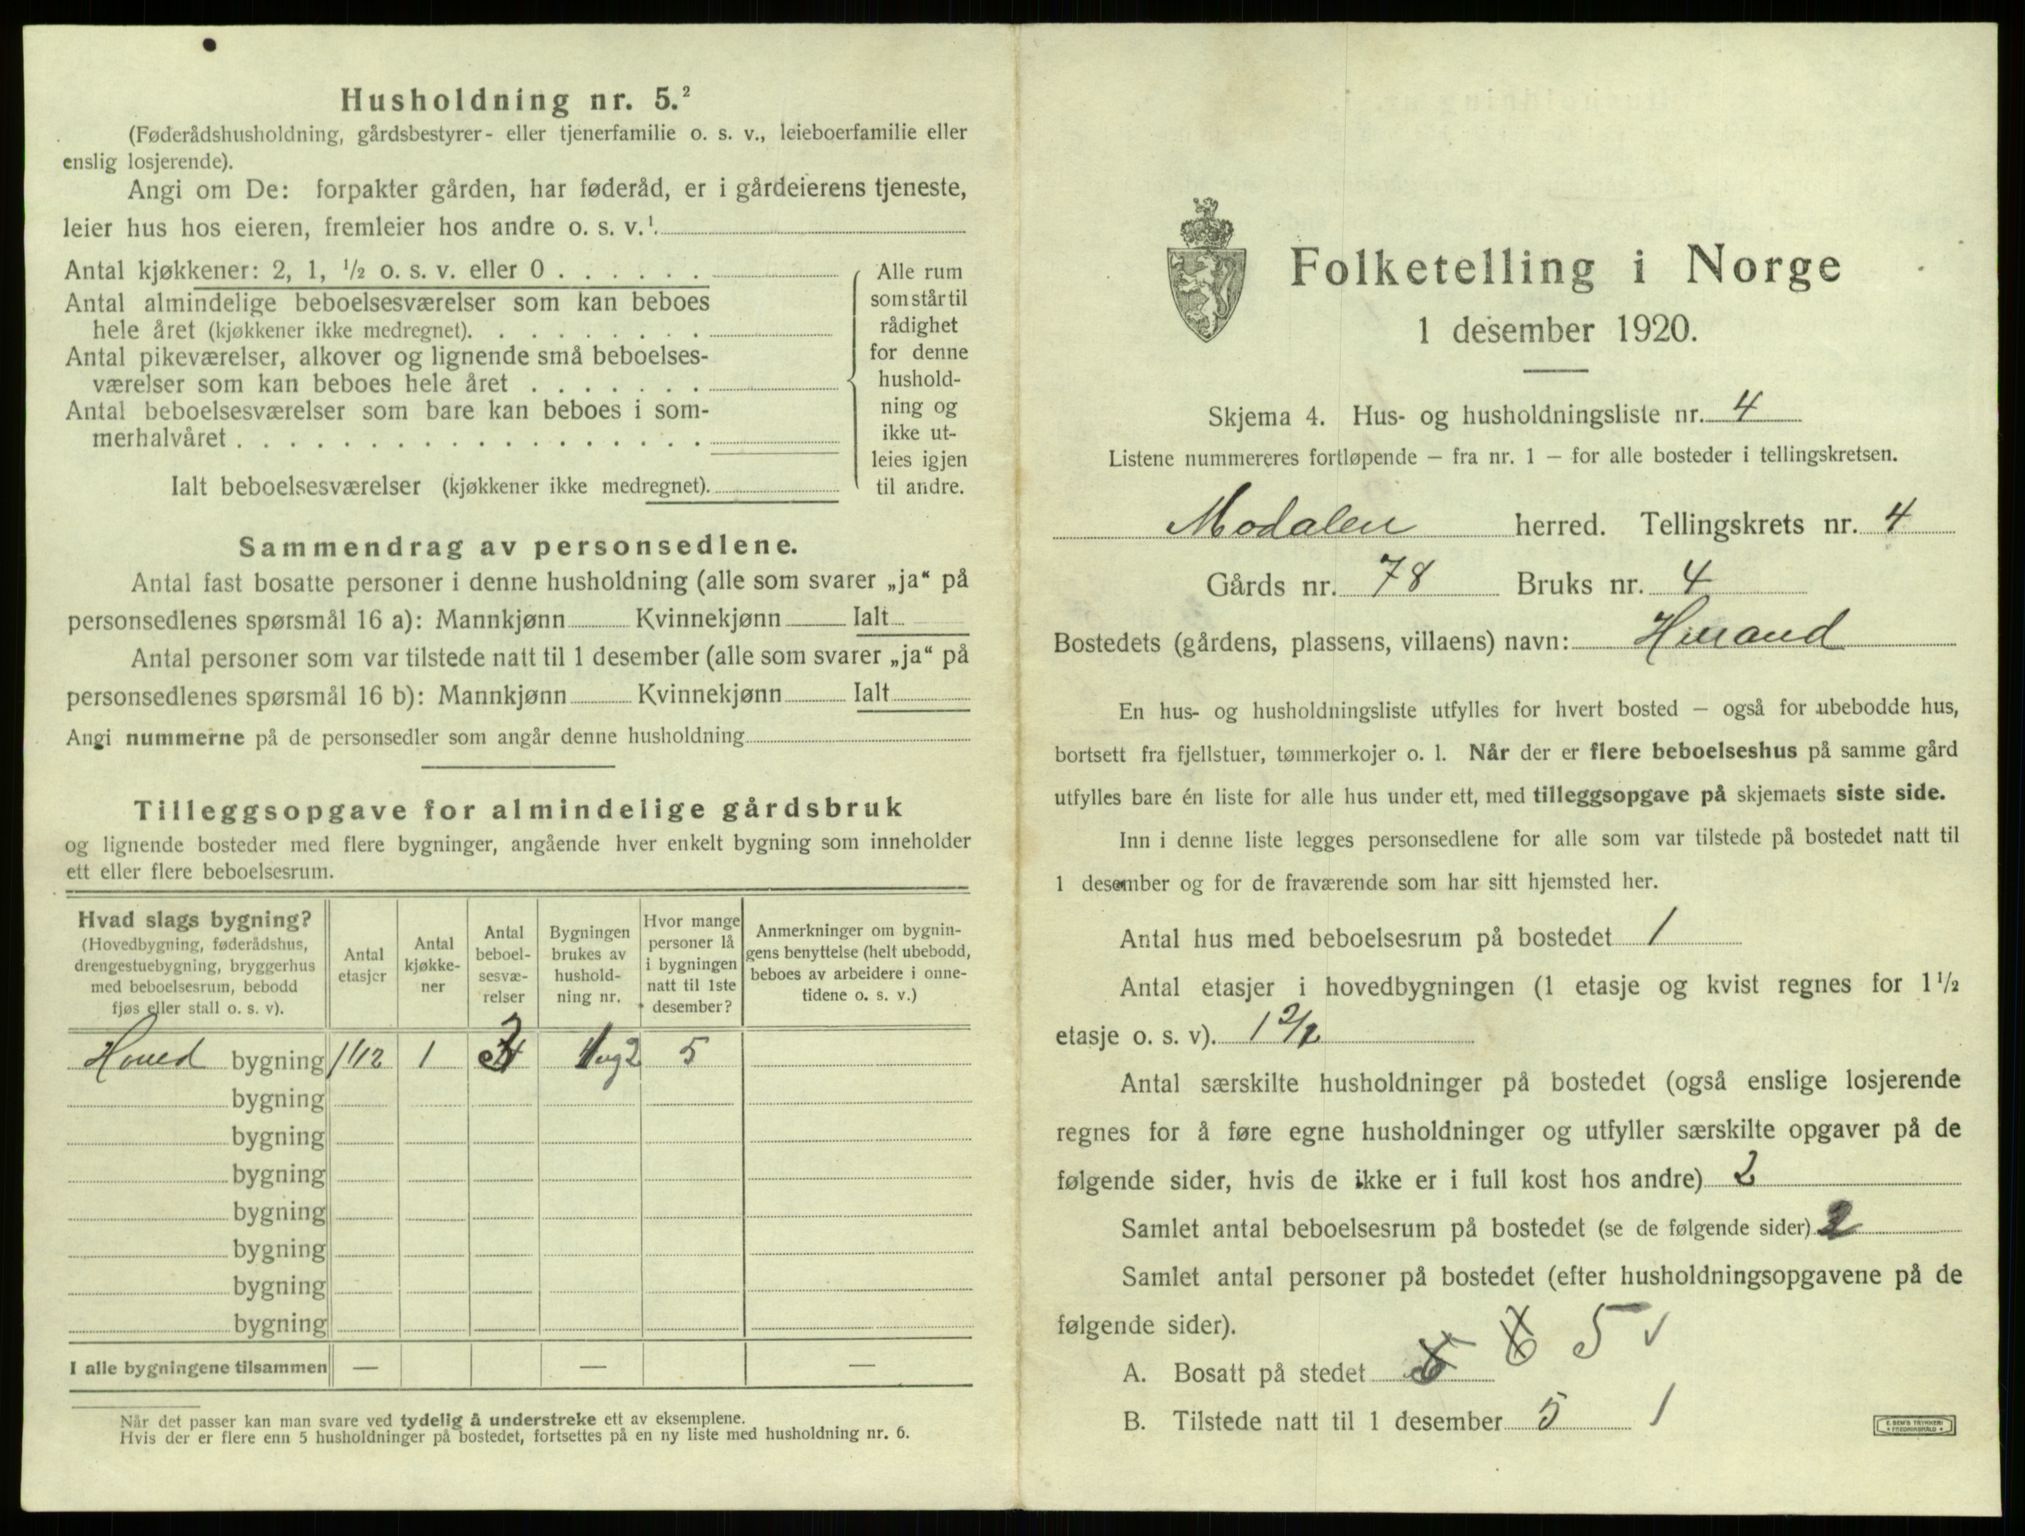 Husholdning nr. 5.²
(Føderådshusholdning, gårdsbestyrer- eller tjenerfamilie o. s. v., leieboerfamilie eller
enslig losjerende).
Angi om De: forpakter gården, har føderåd, er i gårdeierens tjeneste,
leier hus hos eieren, fremleier hos andre o. s. v.¹
Antal kjøkkener: 2, 1, ½ o. s. v. eller 0
Antal almindelige beboelsesværelser som kan beboes
hele året (kjøkkener ikke medregnet).
Antal pikeværelser, alkover og lignende små beboelses-
værelser som kan beboes hele året
Antal beboelsesværelser som bare kan beboes i som-
merhalvåret
Ialt beboelsesværelser (kjøkkener ikke medregnet).
Alle rum
som står til
rådighet
for denne
hushold-
ning og
ikke ut-
leies igjen
til andre.
Sammendrag av personsedlene.
Antal fast bosatte personer i denne husholdning (alle som svarer „ja“ på
personsedlenes spørsmål 16 a): Mannkjønn Kvinnekjønn Ialt
Antal personer som var tilstede natt til 1 desember (alle som svarer „ja“ på
personsedlenes spørsmål 16 b): Mannkjønn Kvinnekjønn Ialt
Angi nummerne på de personsedler som angår denne husholdning
Tilleggsopgave for almindelige gårdsbruk
og lignende bosteder med flere bygninger, angående hver enkelt bygning som inneholder
ett eller flere beboelsesrum.
Hvad slags bygning?
(Hovedbygning, føderådshus,
drengestuebygning, bryggerhus
med beboelsesrum, bebodd
fjøs eller stall o. s. v).
Antal
etasjer
Antal
kjøkke-
ner
Antal
beboel-
sesvæ-
relser
Bygningen
brukes av
hushold-
ning nr.
Hvor mange
personer lå
i bygningen
natt til 1ste
desember?
Anmerkninger om bygnin-
gens benyttelse (helt ubebodd,
beboes av arbeidere i onne-
tidene o. s. v.)
Hoved bygning 1 1/2 1 1 og 2 5
bygning
bygning
bygning
bygning
bygning
bygning
bygning
I alle bygningene tilsammen — — —
Når det passer kan man svare ved tydelig å understreke ett av eksemplene.
Hvis der er flere enn 5 husholdninger på bostedet, fortsettes på en ny liste med husholdning nr. 6.
Folketelling i Norge
1 desember 1920.
Skjema 4. Hus- og husholdningsliste nr. 4
Listene nummereres fortløpende — fra nr. 1 — for alle bosteder i tellingskretsen.
Modalen herred. Tellingskrets nr. 4
Gårds nr. 78 Bruks nr. 4
Bostedets (gårdens, plassens, villaens) navn:
En hus- og husholdningsliste utfylles for hvert bosted — også for ubebodde hus,
bortsett fra fjellstuer, tømmerkojer o. l. Når der er flere beboelseshus på samme gård
utfylles bare én liste for alle hus under ett, med tilleggsopgave på skjemaets siste side.
Inn i denne liste legges personsedlene for alle som var tilstede på bostedet natt til
1 desember og for de fraværende som har sitt hjemsted her.
Antal hus med beboelsesrum på bostedet 1
Antal etasjer i hovedbygningen (1 etasje og kvist regnes for 1½
etasje o. s. v).
Antal særskilte husholdninger på bostedet (også enslige losjerende
regnes for å føre egne husholdninger og utfyller særskilte opgaver på de
følgende sider, hvis de ikke er i full kost hos andre) 2
Samlet antal beboelsesrum på bostedet (se de følgende sider) 2
Samlet antal personer på bostedet (efter husholdningsopgavene på de
følgende sider).
A. Bosatt på stedet 5
B. Tilstede natt til 1 desember 5
E. SEM'S TRYKKERI
FREDRIKSHALD